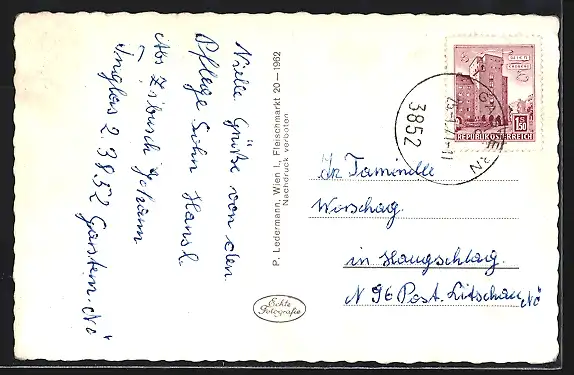 Viele Grüße von den
Pflege Sohn Hansl
Abs Zibusch Johann
2 3852 Gastern. NÖ
P. Ledermann, Wien I., Fleischmarkt 20—1962
Nachdruck verboten
Echte
Fotografie
WIEN
REPUBLIK ÖSTERREICH
1.50
3852
Worschag.
in Haugschlag.
N 96 Post. Litschau NÖ